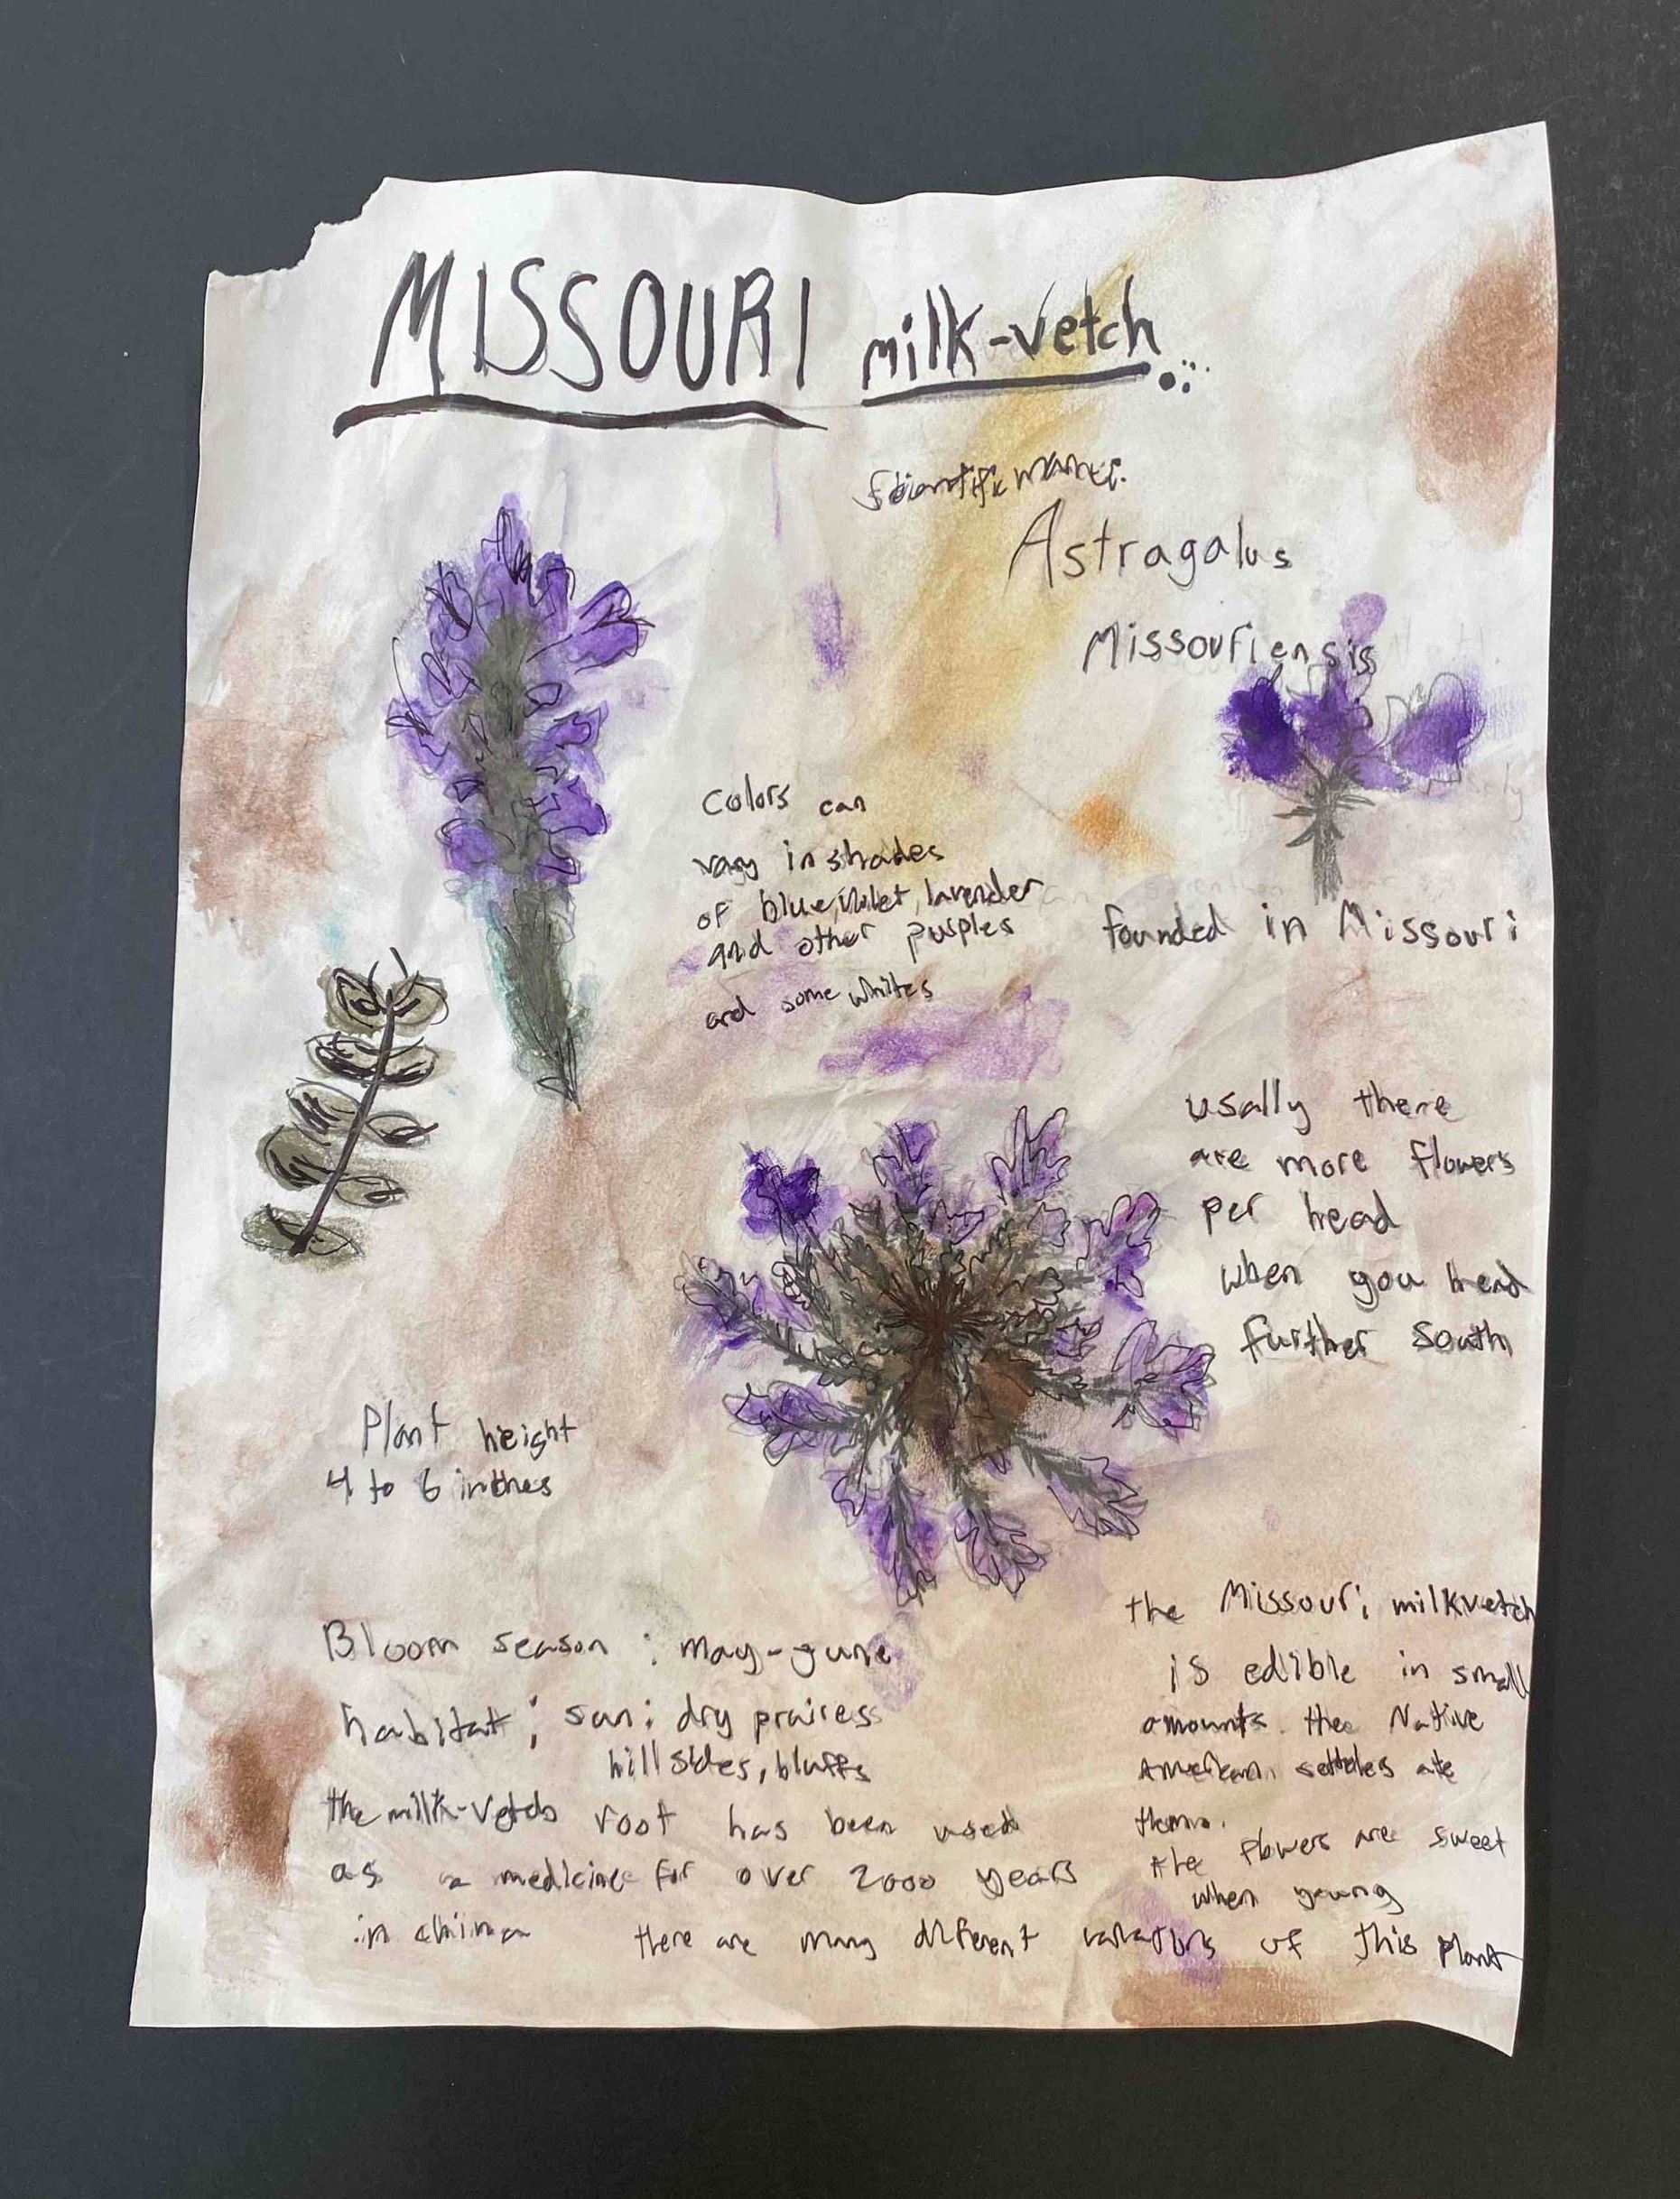 MISSOURI milk-vetch
Astragalus
Missouriensis
Colors can
vary in shades
of blue, violet, lavender
and other purples
and some whites
founded in Missouri
usally there
are more flowers
per head
when you head
further south
Plant height
4 to 6 inches
Bloom season : may-june
habitat ; sun: dry prairess
hillsides, bluffs
the milk-vetch root has been used
as a medicine for over 2000 years
in china
the Missouri milkvetch
is edible in small
amounts. the Native
American ate
them.
the flowers are sweet
when young
there are many different of this plant